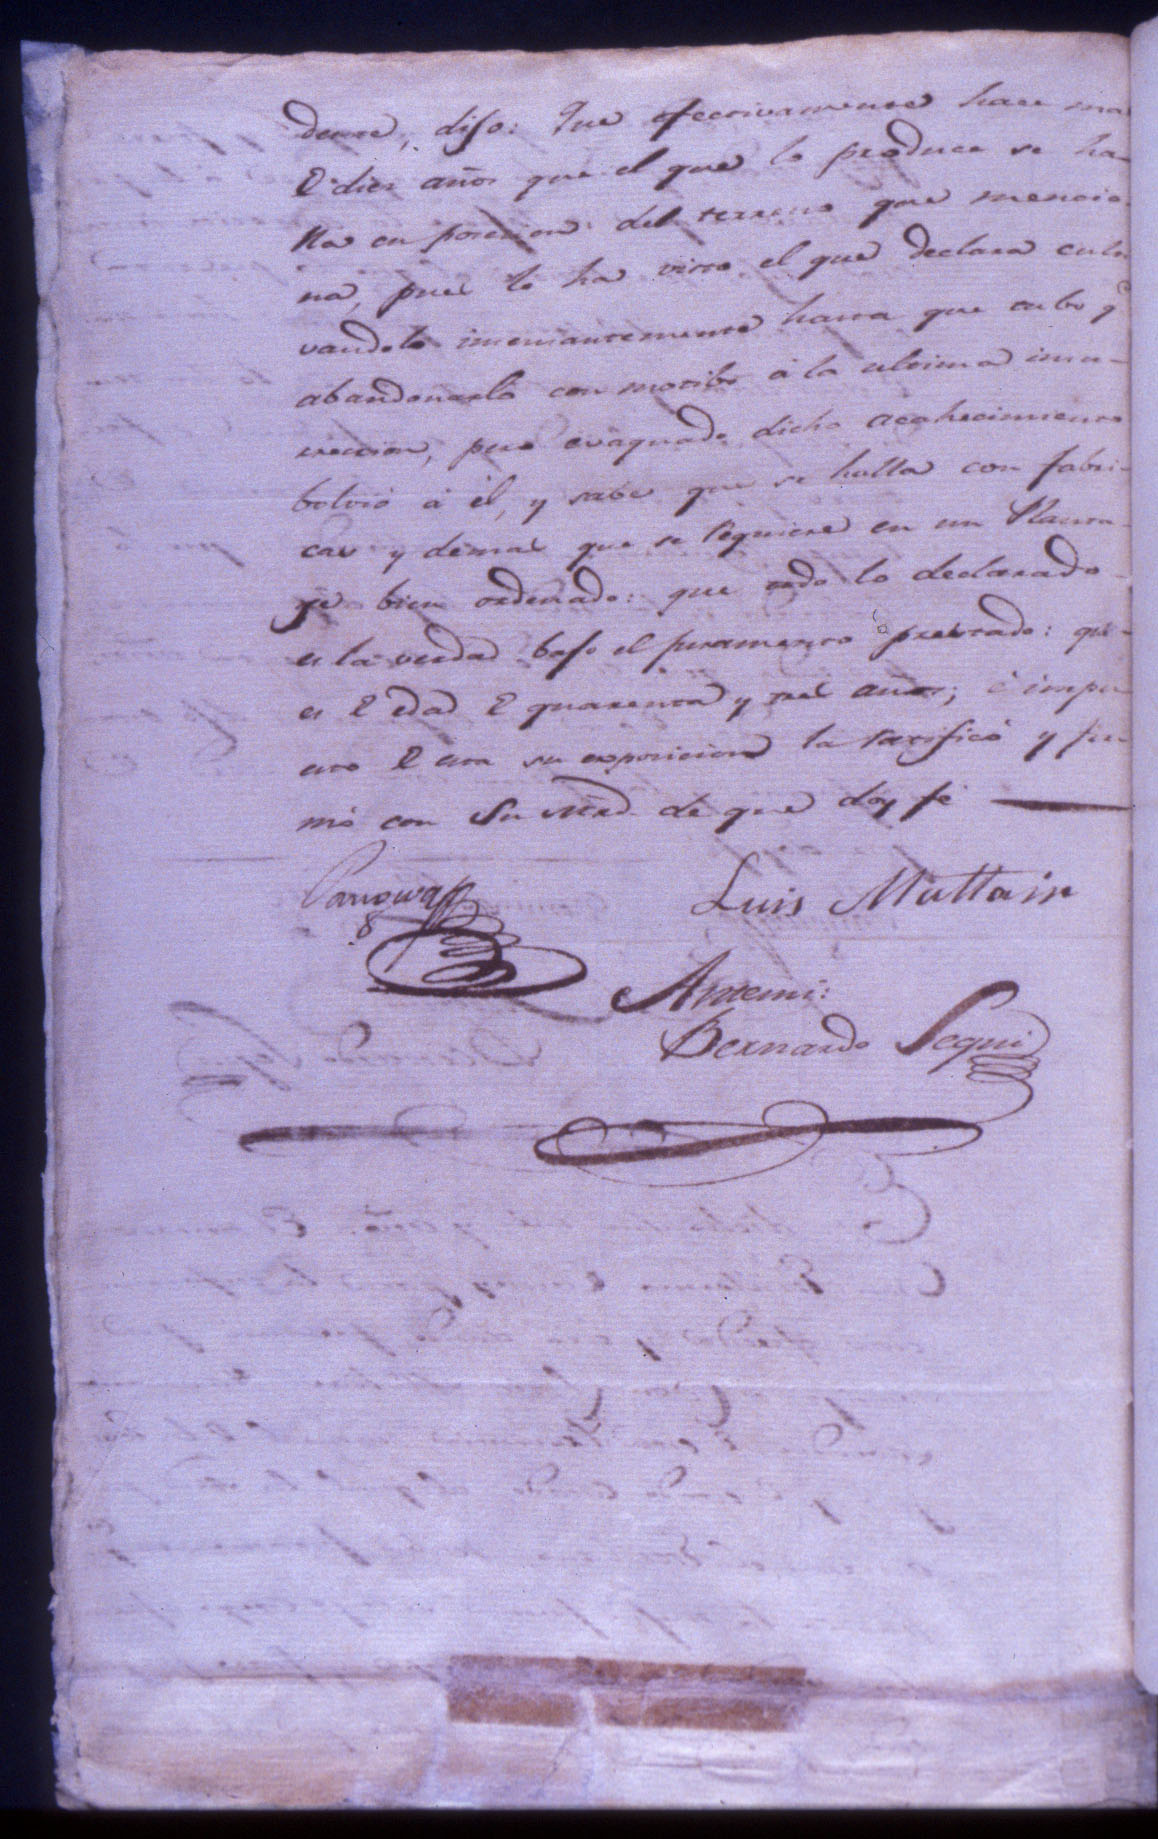 dente, dijo: Que efectivamente hace mas
de diez años que el que lo produce se ha-
lla en posesion del terreno que mencio-
na, pues lo ha visto el que declara culti-
vandolo incesantemente hasta que tubo qe
abandonarlo con motibo á la ultima insu-
rreccion, pero evaquado dicho acahecimiento
bolvió á él, y sabe que se halla con fabri-
cas y demas que se requiere en un Planta-
je bien ordenado: que todo lo declarado
es la verdad bajo el juramento prestado: que
es de edad de quarenta y tres años; é impu-
esto de esta su exposicion la ratificó y fir-
mó con Su Mrd. de que doy fé
Luis Mattair
Antemi:
Bernardo Segui